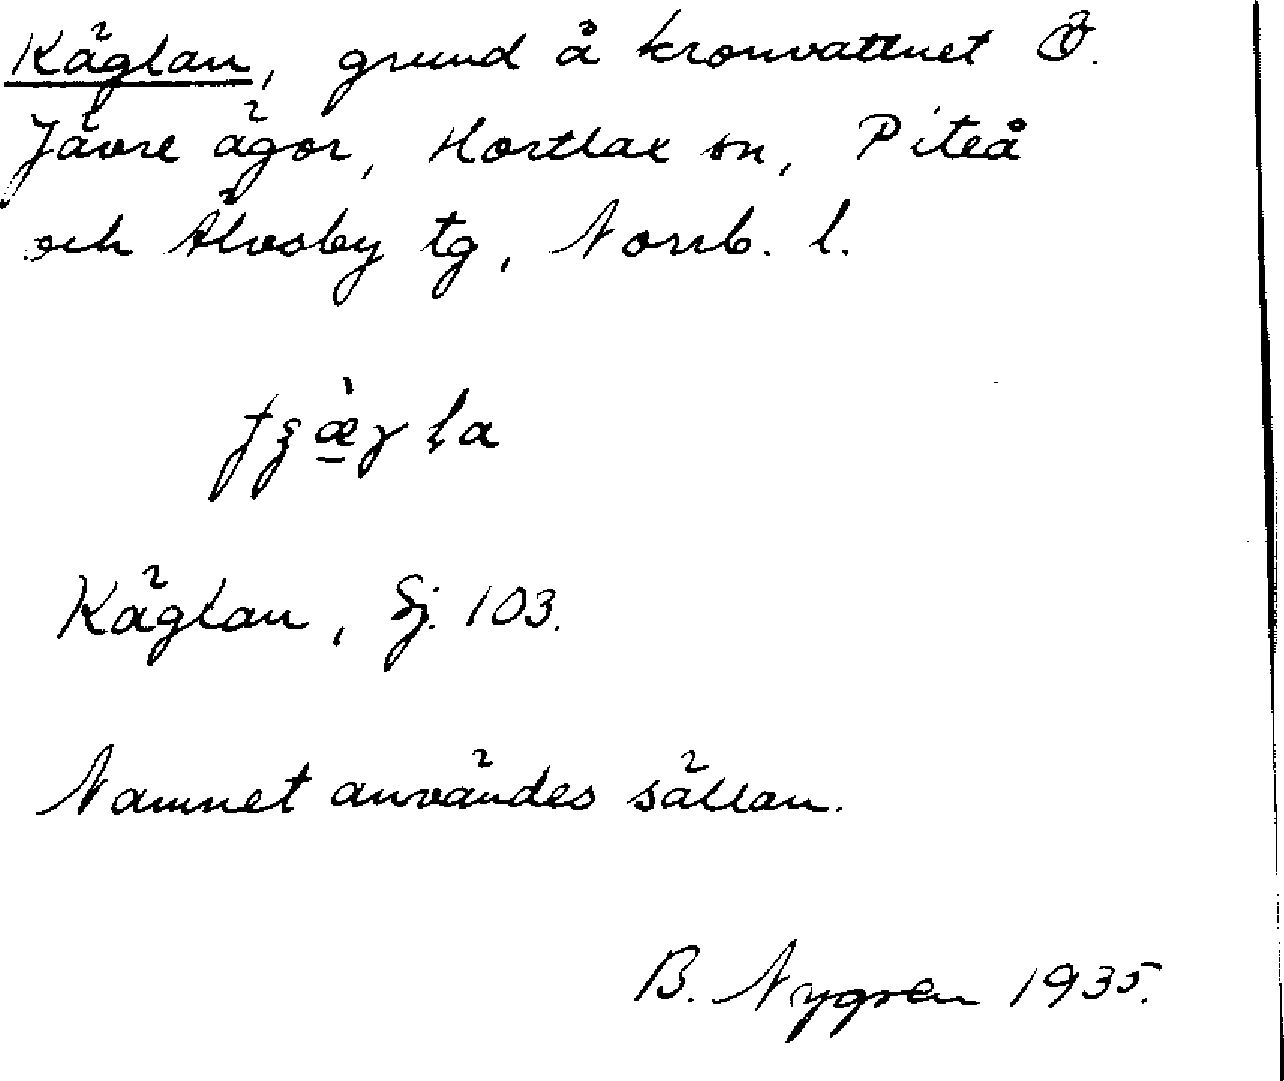 Käglan, grund å kronvattnet Ö.
Jävre ägor, Hortlax sn, Piteå
och Älvsby tg, Norrb. l.
Käglan, Sj. 103.
Namnet användes sällan.
B. Nygren 1935.